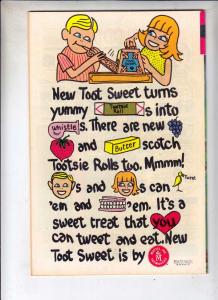 New Toot Sweet turns
yummy Tootsie Roll s into
whistle s. There are new
and Butter scotch
Tootsie Rolls too. Mmmm!
's and 's can Tweet
'em and 'em. It's a
sweet treat that you
can tweet and eat. New
Toot Sweet is by M